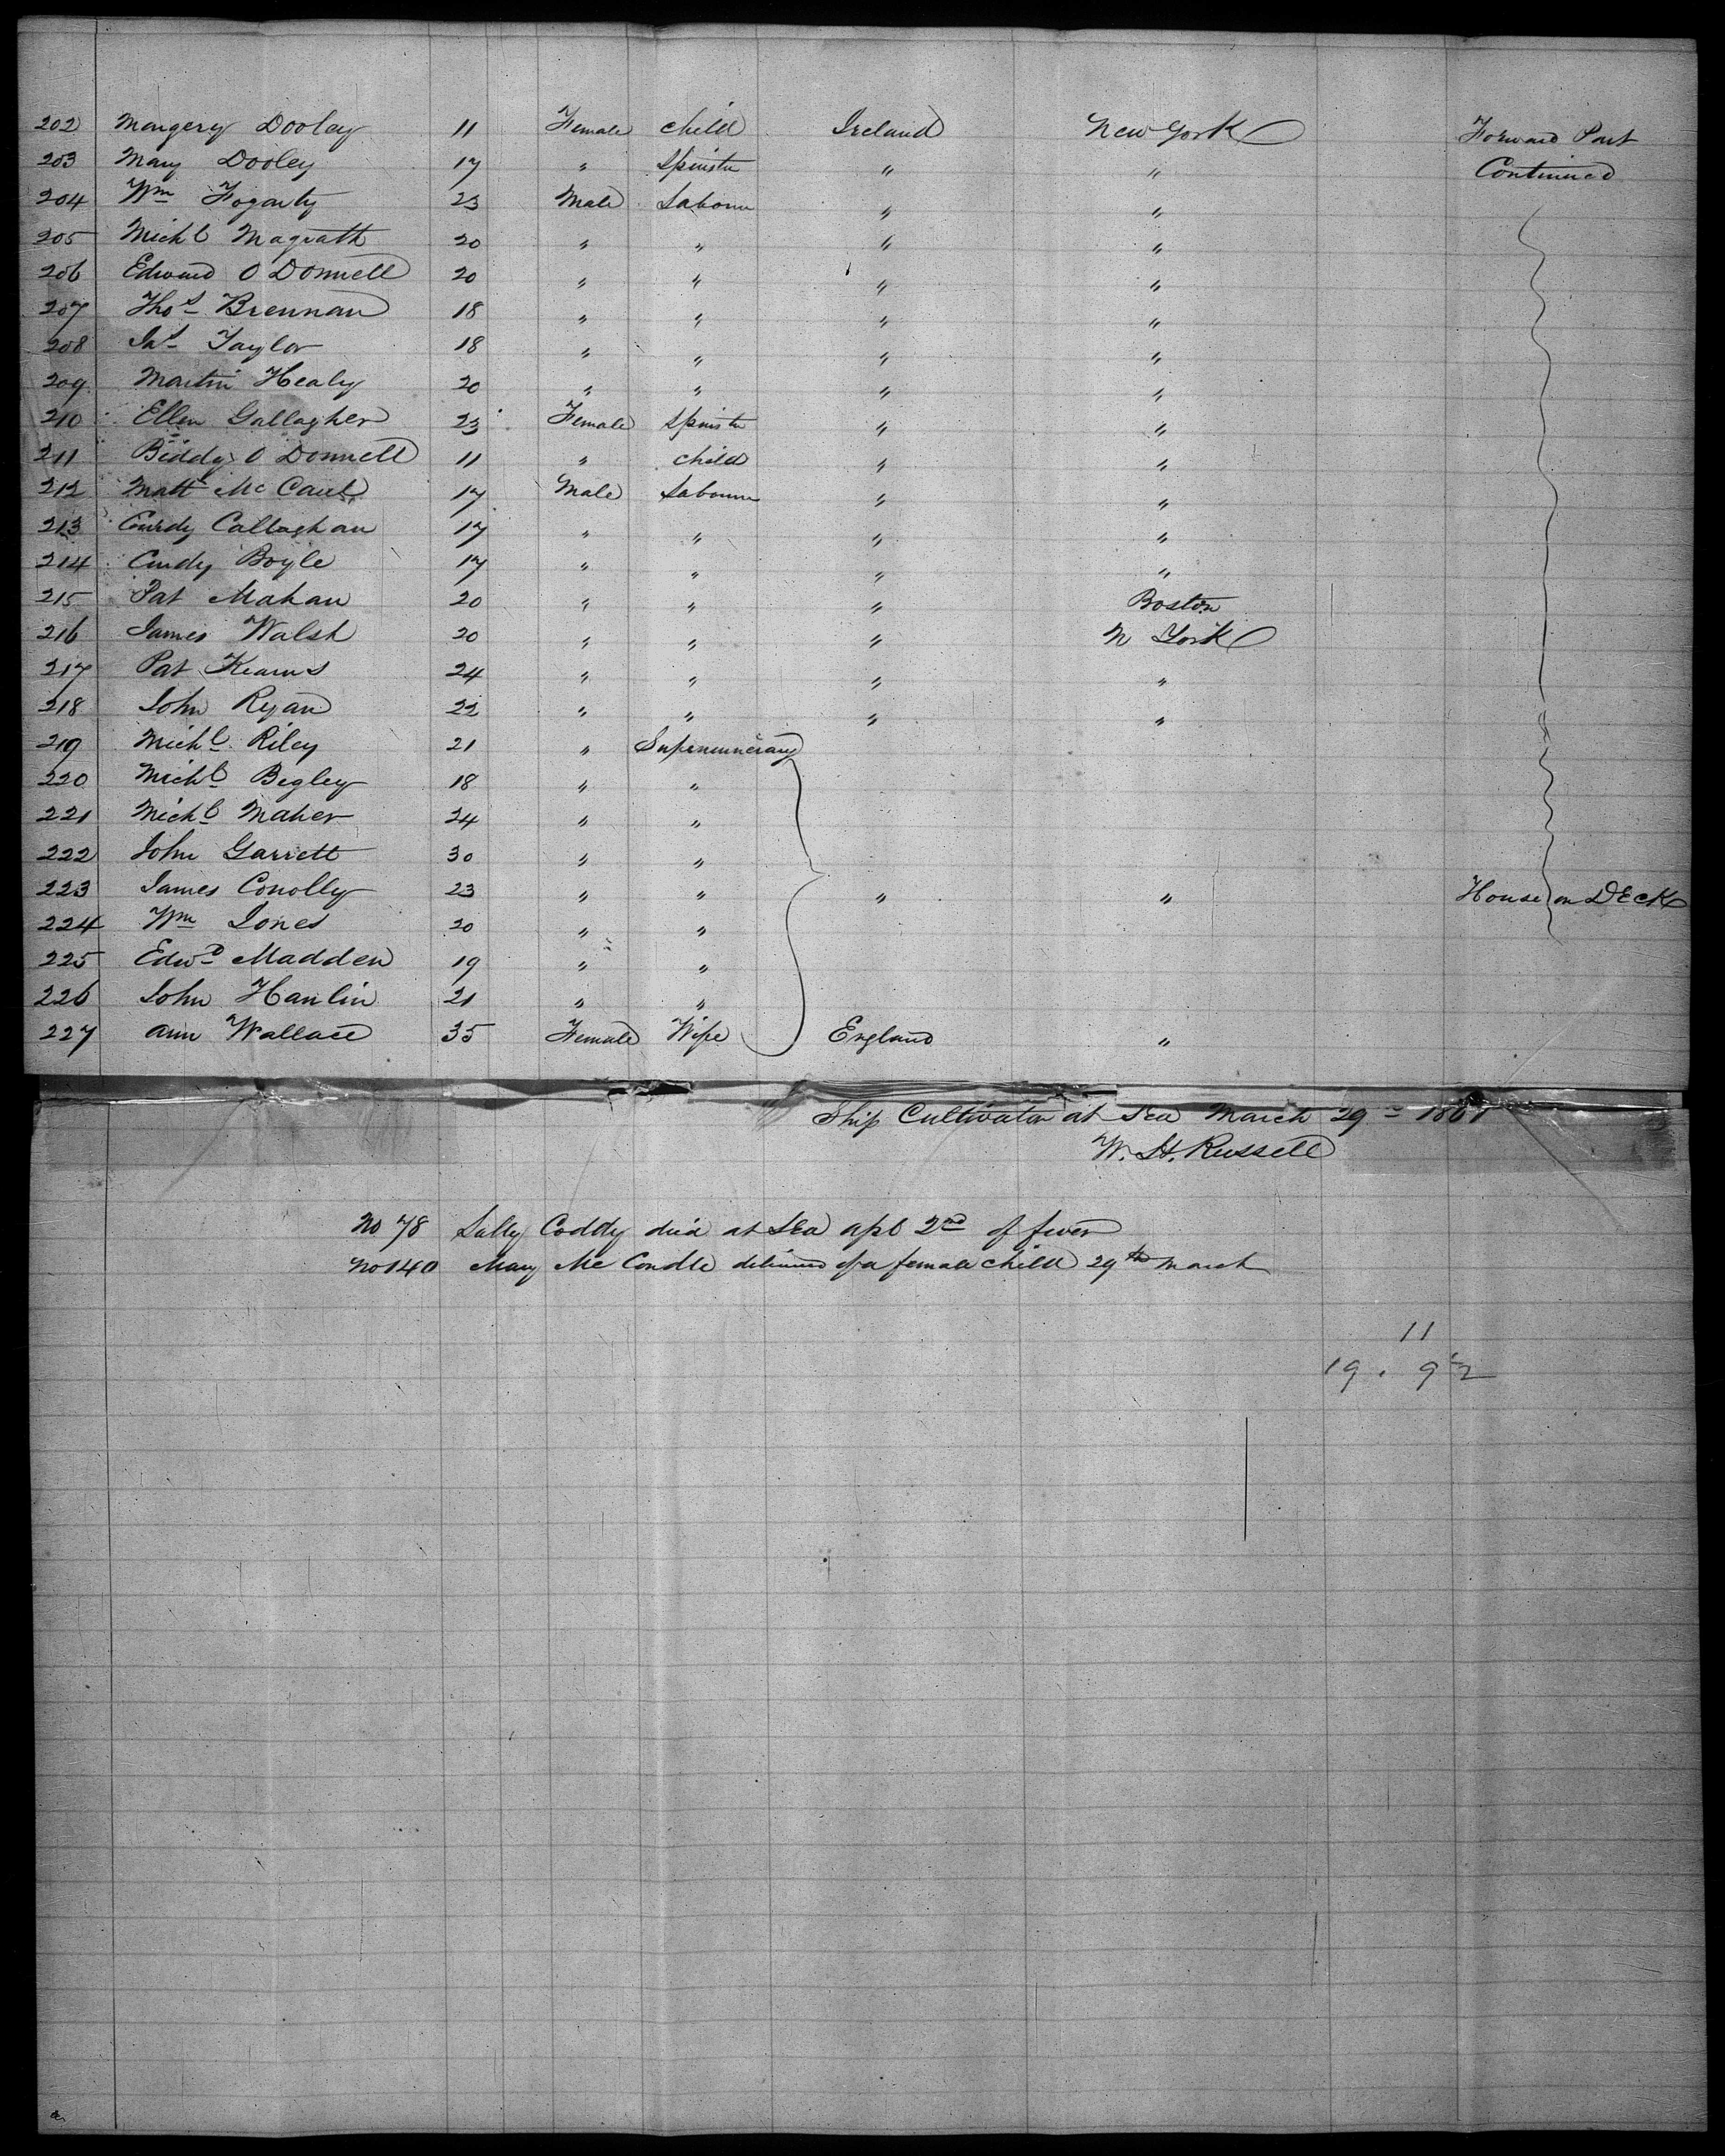 202 Margery Dooley 11 Female child Ireland New York Forward Part
203 Mary Dooley 17 " Spinster " " Continued
204 Wm Fogarty 23 Male Labourer " "
205 Michl Magrath 20 " " " "
206 Edward O Donnell 20 " " " "
207 Thos Brennan 18 " " " "
208 Jas Taylor 18 " " " "
209 Martin Healy 20 " " " "
210 Ellen Gallagher 23 Female Spinster " "
211 Biddy O Donnell 11 " child " "
212 Matt Mc Caul 17 Male Labourer " "
213 Callaghan 17 " " " "
214 Boyle 17 " " " "
215 Pat Mahan 20 " " " Boston
216 James Walsh 20 " " " N York
217 Pat Kearns 24 " " " "
218 John Ryan 22 " " " "
219 Michl Riley 21 " Supernumerary
220 Michl Begley 18 " "
221 Michl Maher 24 " "
222 John Garrett 30 " "
223 James Conolly 23 " " " " House on DEck
224 Wm Jones 20 " "
225 Edwd Madden 19 " "
226 John Hanlin 21 " "
227 Ann Wallace 35 Female Wife England "
Ship Cultivator at Sea March 29 1861
W. H. Russell
No 78 Sally Coddy died at Sea apl 2nd of fever
No 140 Mary Mc Condle delivered of a female child 29th March
11
19 . 9 1/2